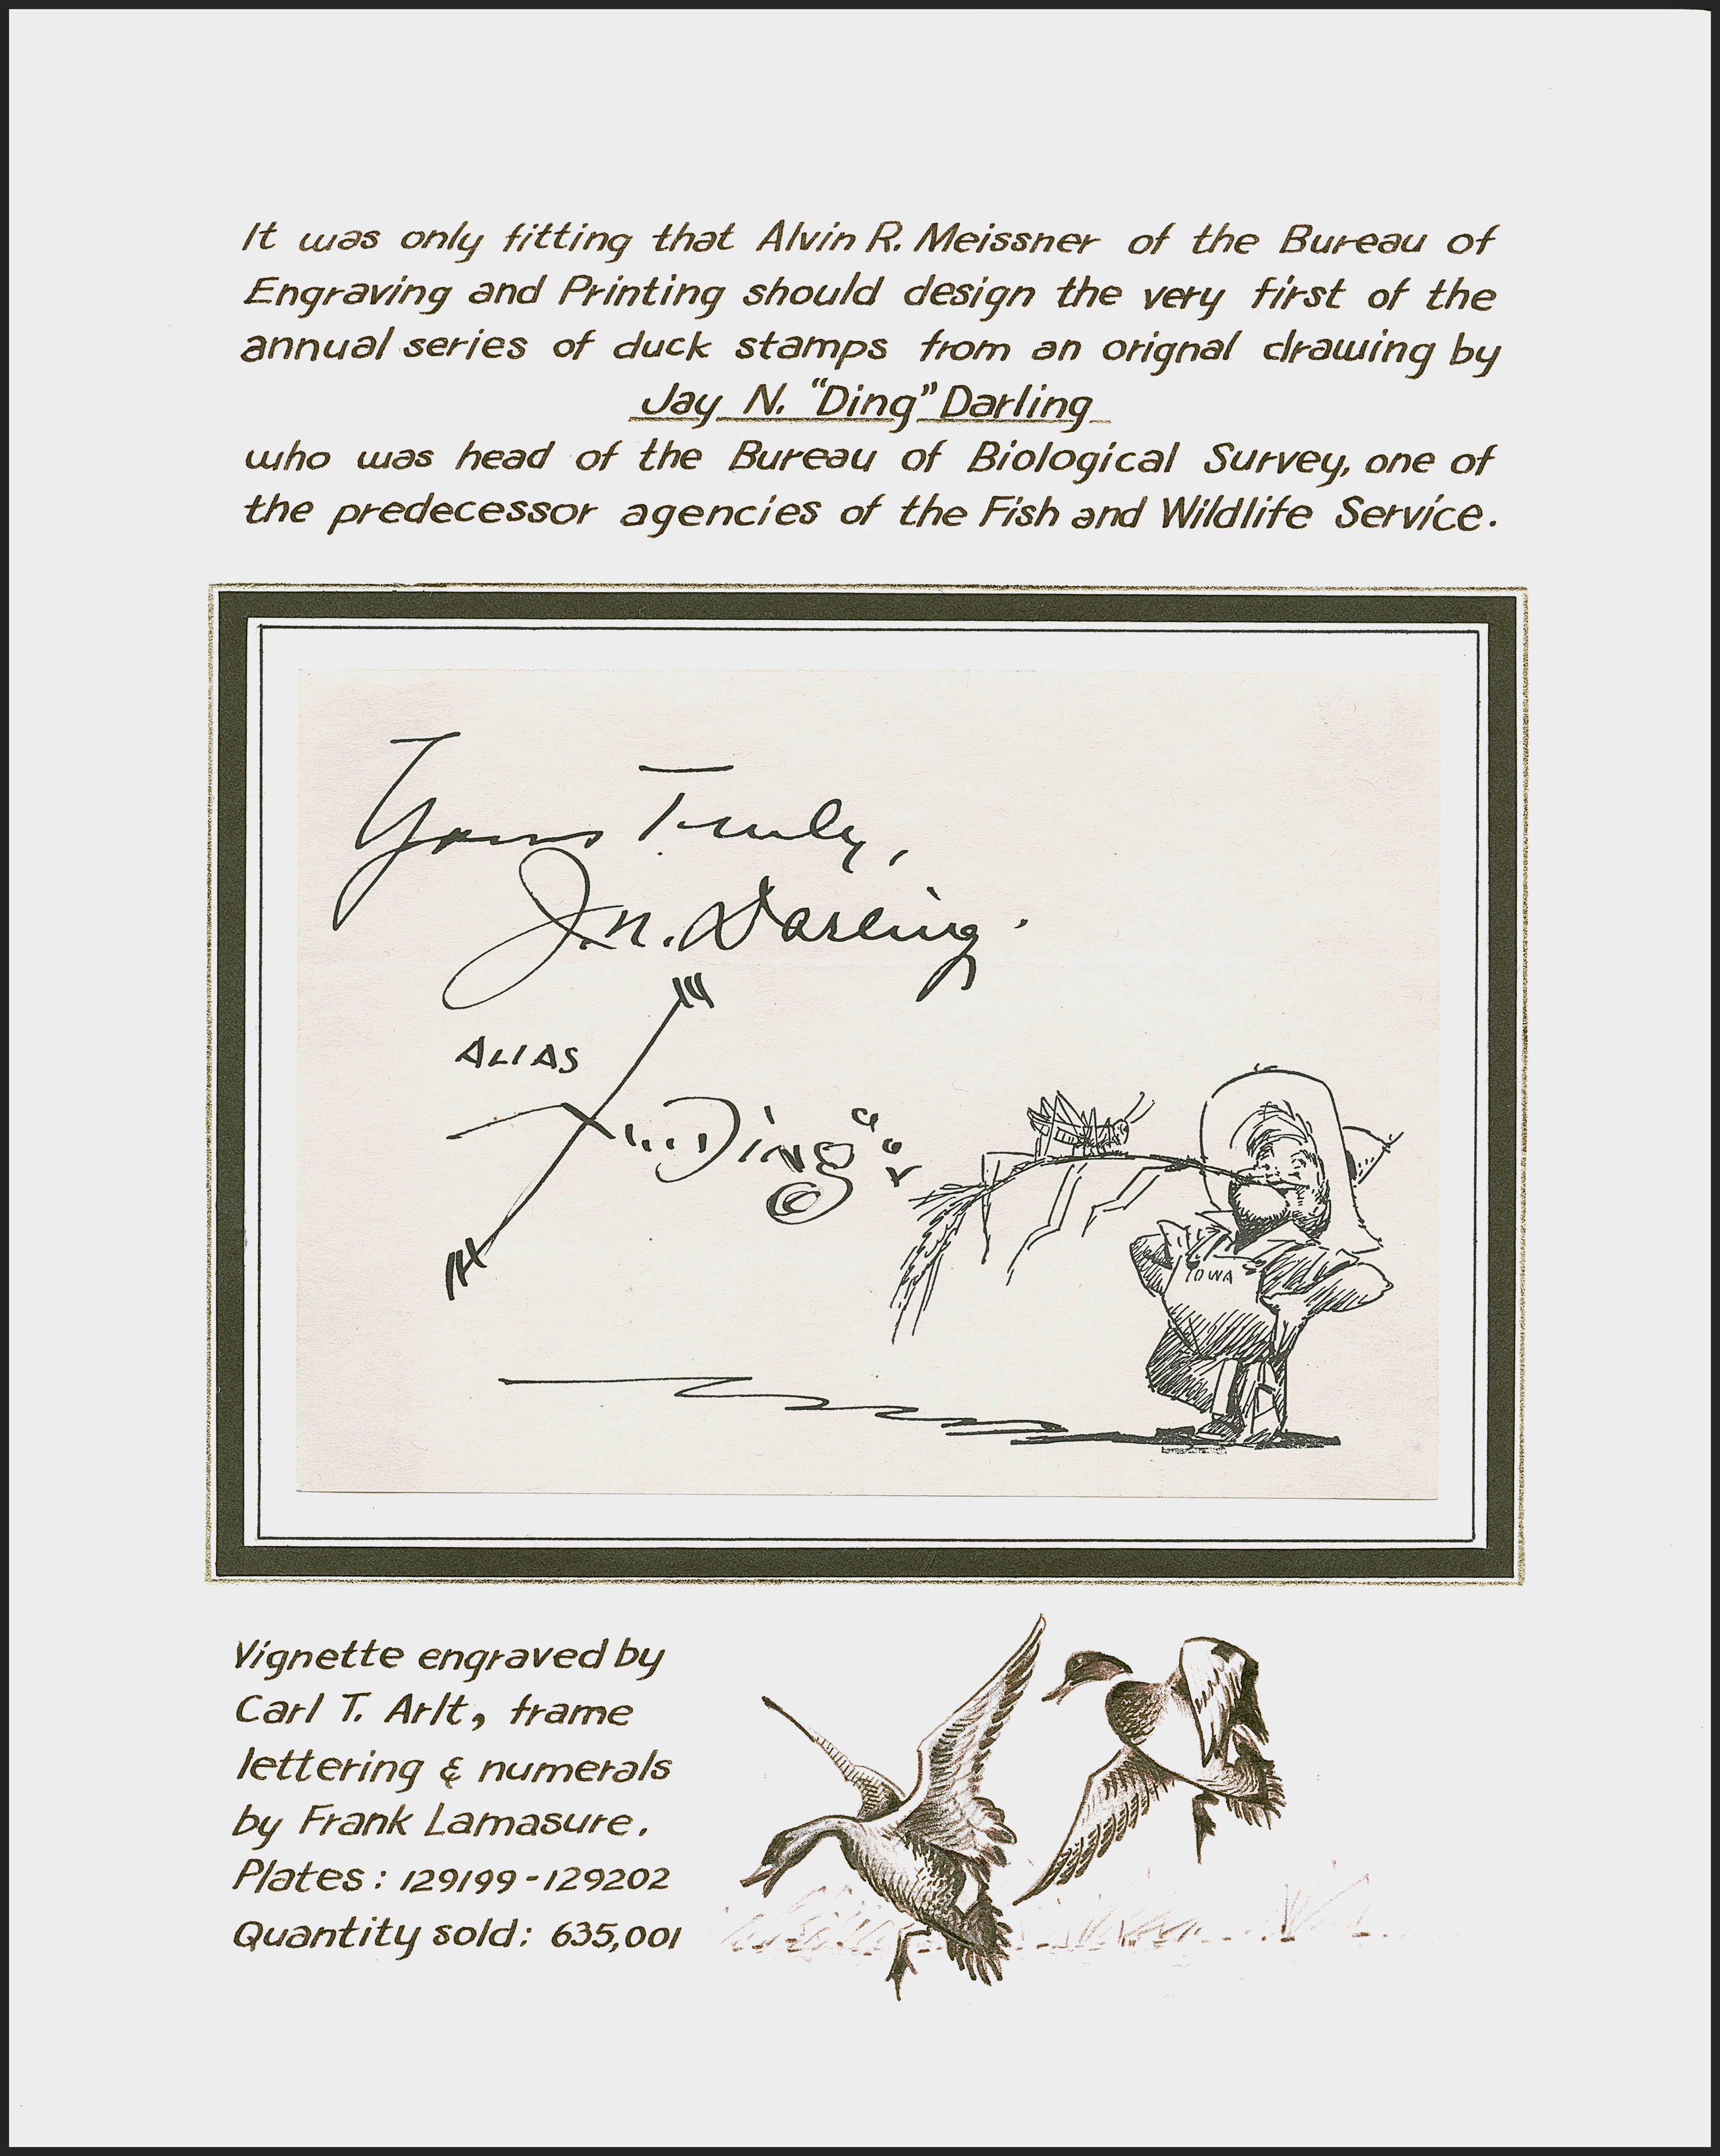 It was only fitting that Alvin R. Meissner of the Bureau of
Engraving and Printing should design the very first of the
annual series of duck stamps from an orignal drawing by
Jay N. “Ding” Darling
who was head of the Bureau of Biological Survey, one of
the predecessor agencies of the Fish and Wildlife Service.
Yours Truly,
J.N. Darling.
ALIAS
"Ding"
IOWA
Vignette engraved by
Carl T. Arlt, frame
lettering & numerals
by Frank Lamasure.
Plates: 129199-129202
Quantity sold: 635,001